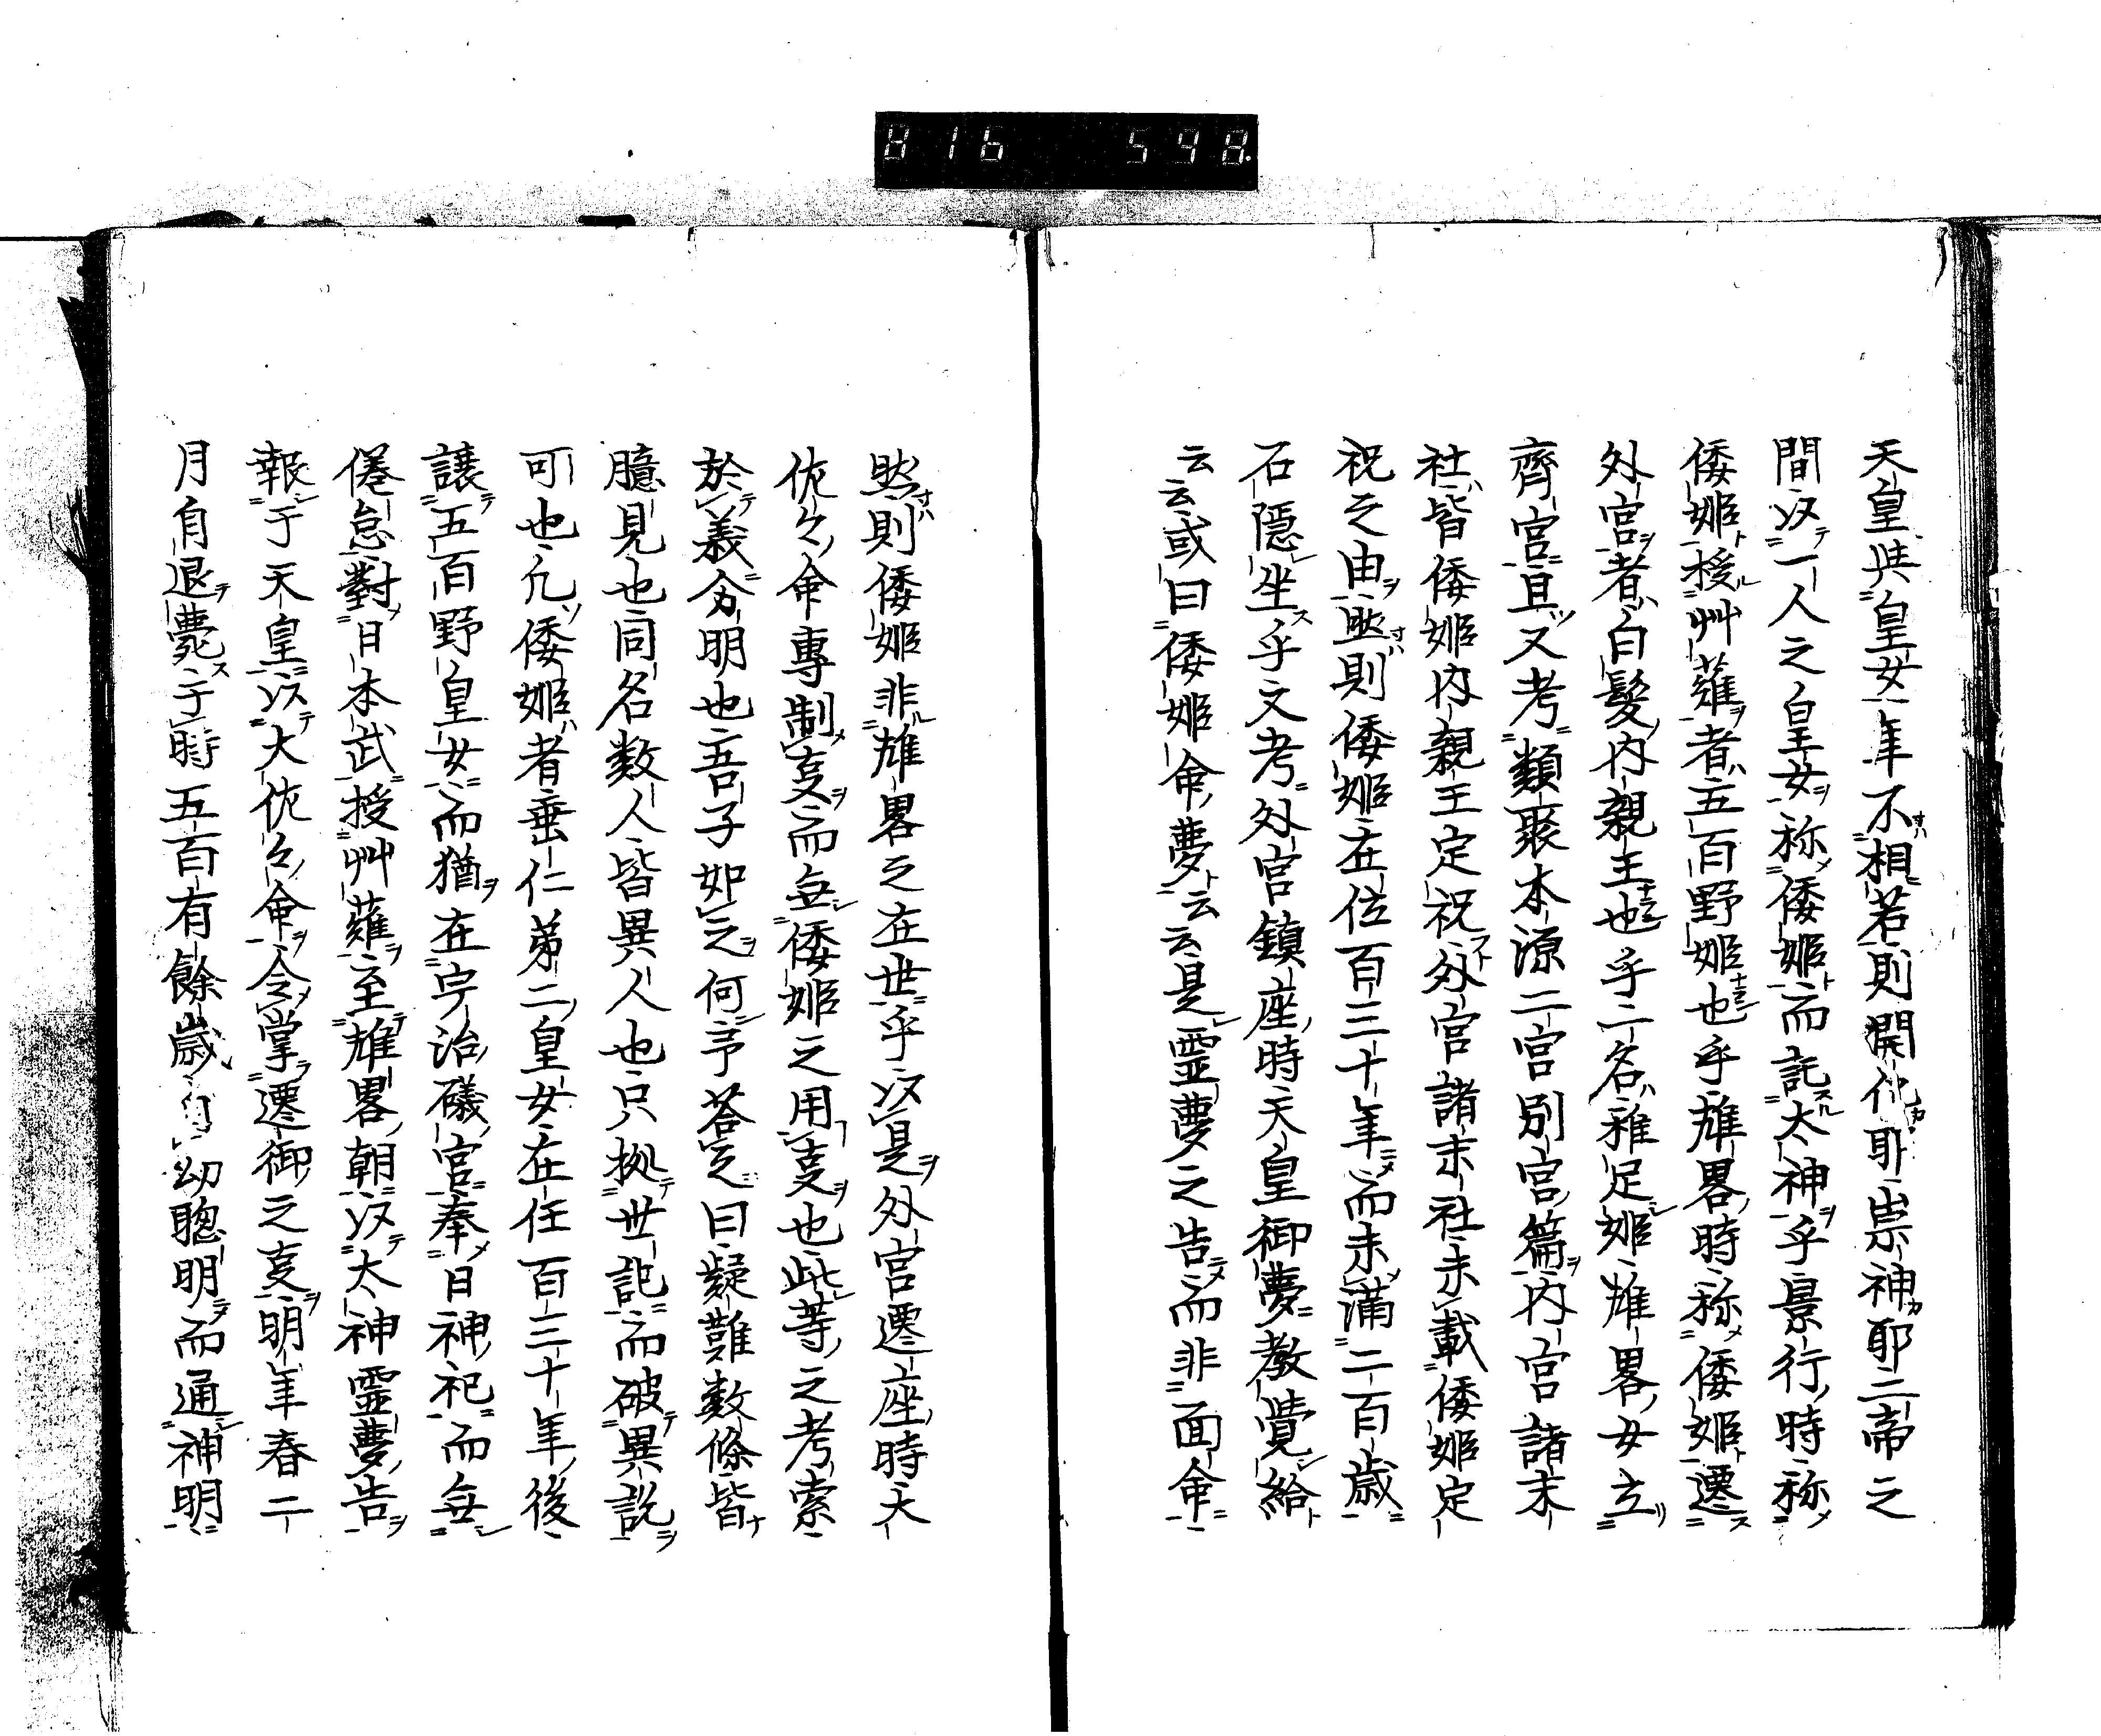 816 598
天皇與皇女年不相若則開化耶崇神耶二帝之
間以一人之皇女称倭姬而託太神乎景行時称
倭姬授艸薙者五百野姬也乎雄畧時称倭姬遷
外宮者白髮内親王也乎二名稚足姬雄畧女立
齊宮且又考類聚本源二宮別宮篇内宮諸末
社皆倭姬内親王定祝外宮諸末社未載倭姬定
祝之由然則倭姬在位百三十年而未滿二百歳
石隱坐乎文考外宮鎮座時天皇御夢教覺給
云云或曰倭姬命夢云云是霊夢之告而非面命
然則倭姬非雄畧之在世乎以是外宮遷座時大
佐々命專制亊而無倭姬之用亊也此等之考索
於義分明也吾子如之何予荅之曰疑難數條皆
臆見也同名数人皆異人也只拠世記而破異説
可也凢倭姬者垂仁第二皇女在任百三十年後
讓五百野皇女而猶在宇治礒宮奉日神祀而無
倦怠對日本武授艸薙至雄畧朝以太神霊夢告
報于天皇以大佐々命令掌遷御之亊明年春二
月自退薨于時五百有餘歳自幼聰明而通神明